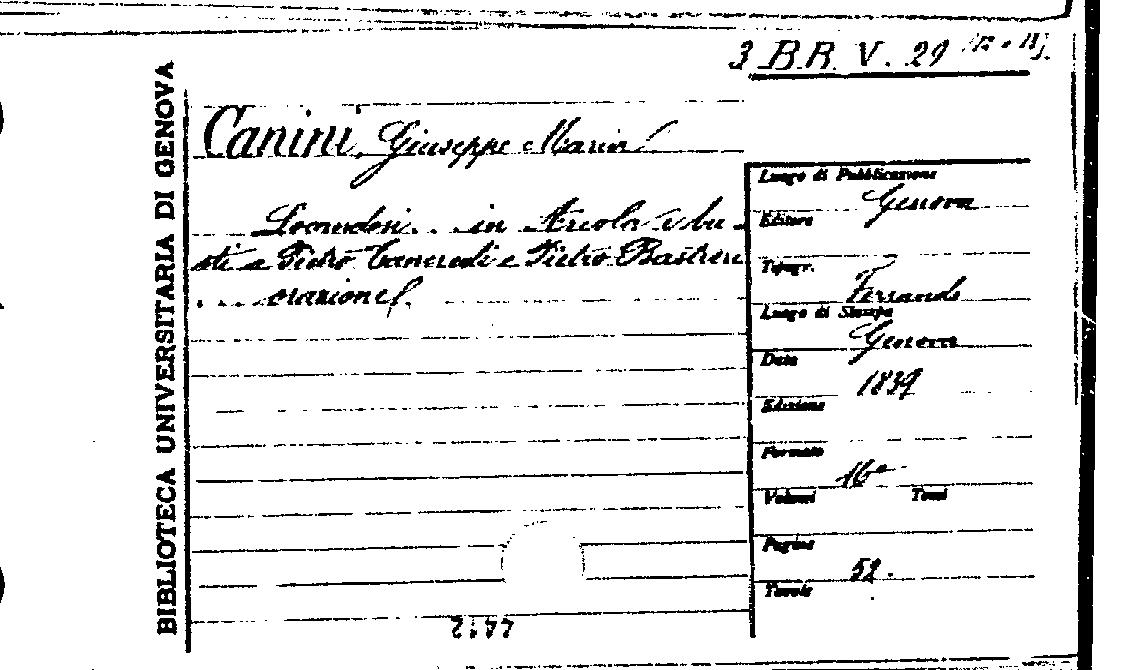 3 B.R. V. 29
BIBLIOTECA UNIVERSITARIA DI GENOVA
Canini, Giuseppe Maria
Locandosi . . in Arcola i bu-
sti a Pietro Tancredi e Pietro Bastreri
. . . orazione.
Luogo di Pubblicazione
Genova
Editore
Tipogr.
Ferrando
Luogo di Stampa
Genova
Data
1839
Edizione
Formato
16°
Volumi Tomi
Pagine
52.
Tavole